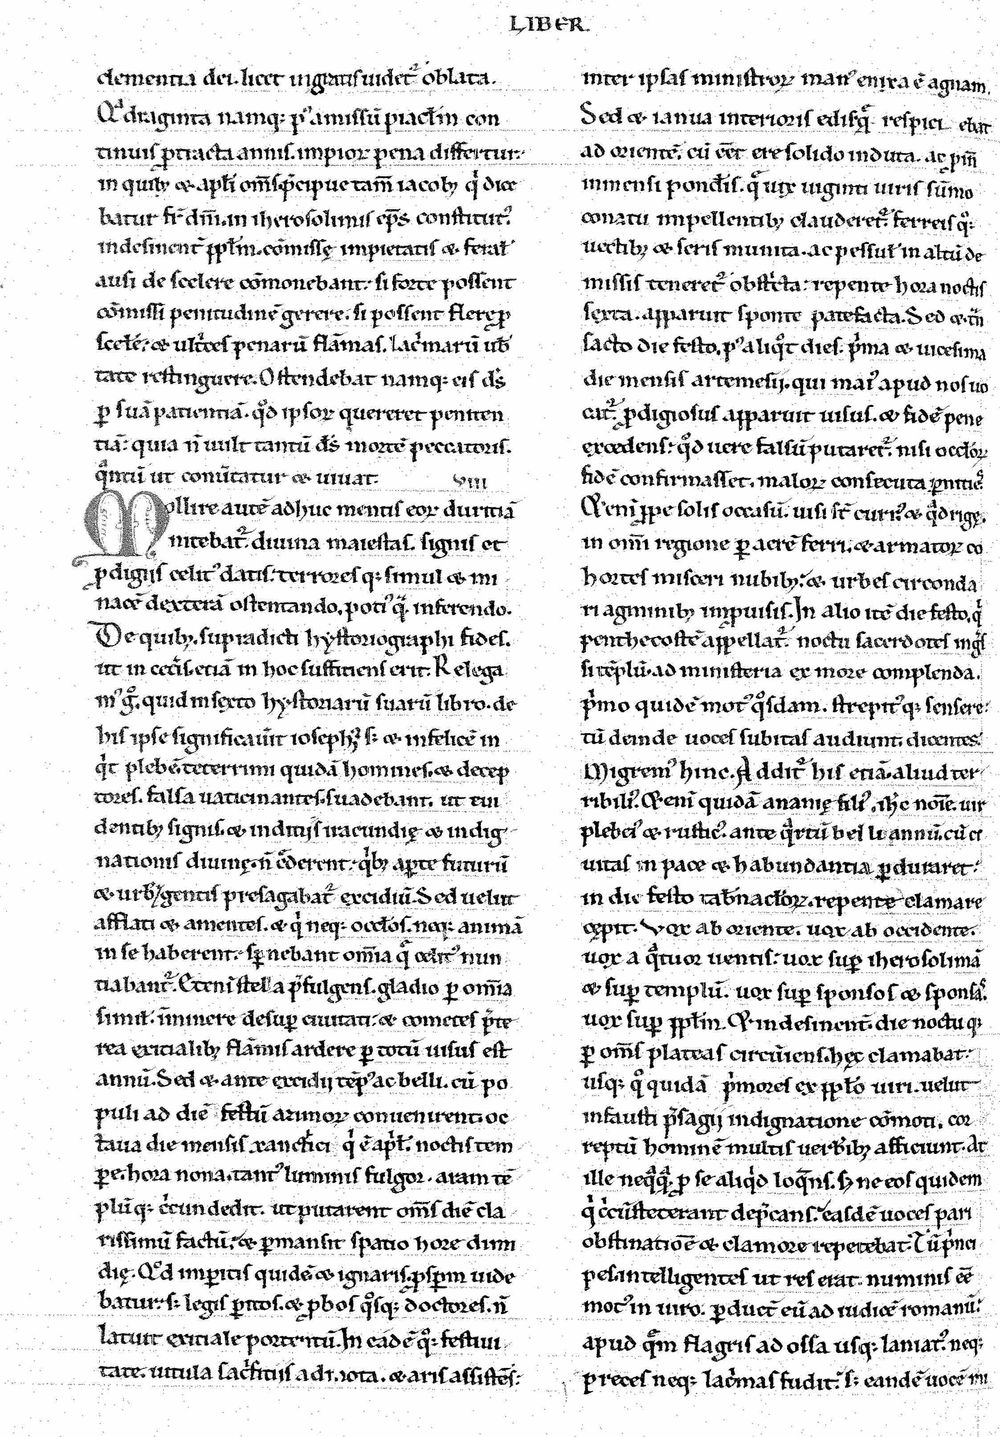 LIBER.
clementia dei. licet ingratis uidet᷑ oblata.
Qͣdraginta namq; pꝰ amissũ piacl̃m con
tinuis ꝓtracta annis. impioꝝ pena differtur:
in quibꝫ & apl̃i om̃s p̃cipue tam̃ iacobꝫ qͥ dice
batur fr̃ dñi. in iherosolimis ep̃s constitutꝰ.
indesinent̃ ppl̃m. cõmissę impietatis & feral̃
ausi de scelere cõmonebant: si forte possent
cõmissi penitudinẽ gerere. si possent flere ꝓ
scelẽ: & ult̃ces penarũ flãmas. lac̃marũ ub̃
tate restinguere. Ostendebat namq; eis dʼs
ꝑ suã patientiã. qͦd ipsoꝝ quereret peniten
tiã: quia ñ uult tantũ dʼs mortẽ peccatoris.
qͣntũ ut conũtatur & uiuat. VIII
Mollire autẽ adhuc mentis eoꝝ duritiã
nitebat᷑ diuina maiestas. signis et
ꝓdigiis celitꝰ datis: terrores q; simul & mi
nacẽ dexterã ostentando. potiꝰ qͣ̃ inferendo.
De quibꝫ. supradicti hystoriographi fides.
ut in cet̃is. etiã in hoc sufficiens erit. Relega
mꝰ gͦ. quid in sexto hystoriarũ suarũ libro. de
his ipse significauit ioseph; s; & infelicẽ in
qͥt plebẽ. teterrimi quidã homines. & decep
tores. falsa uaticinantes. suadebant. ut eui
dentibꝫ signis. & inditijs iracundię & indig
nationis diuinę. ñ c̃derent: qͥbꝫ aꝑte futurũ
& urbꝫ gentis presagabat᷑ excidiũ. Sed uelut
afflati & amentes. & qͥ neq; occl̃os. neq; animã
in se haberent. sꝑnebant om̃ia qͣ celitꝰ nun
tiabant᷑. Etenĩ stella p̃fulgens. gladio ꝑ om̃ia
simil̃. ĩminere desuꝑ ciuitati: & cometes p̃te
rea exitialibꝫ flãmis ardere ꝑ totũ uisus est
annũ. Sed & ante excidij tẽpꝰ ac belli. cũ po
puli ad diẽ festũ azimoꝝ conuenirent. oc
taua die mensis xanctici qͥ ẽ apl̃. noctis tem
pe. hora nona. tantꝰ luminis fulgor. aram tẽ
plũ q; cͥcundedit. ut putarent om̃s diẽ cla
rissimũ factũ. & ꝑmansit spatio hore dimi
dię. Qͦd imꝑitis quidẽ & ignaris. ꝓsꝑm uide
batur: s; legis ꝑitos. & ꝓbos qͦsq; doctores. ñ
latuit exitiale portentũ. In eadẽ qͦ; festiui
tate. uitula sac̃ficijs admota. & aris assistẽs:
inter ipsas ministroꝝ manꝰ enixa ẽ agnam.
Sed & ianua interioris edis. q̃ respiciebat
ad orientẽ. cũ eẽt ere solido induta. ac ꝓm̃
inmensi pond̃is. q̃ uix uiginti uiris sũmo
conatu impellentibꝫ clauderet᷑. ferreis qͦ;
uectibꝫ & seris munita. ac pessul̃ in altũ de
missis teneret᷑ obst̃cta: repente hora noctis
sexta. apparuit sponte patefacta. Sed & t̃n
sacto die festo. pꝰ aliqͦt dies. p̃ma & uicesima
die mensis artemesij. qui maiꝰ apud nos uo
cat᷑. ꝓdigiosus apparuit uisus. & fidẽ pene
excedens: qͦd uere falsũ putaret᷑. nisi occl̃oꝝ
fidẽ confirmasset. maloꝝ consecuta ꝑnities.
Etenĩ ꝓpe solis occasũ. uisi st̃ currꝰ & qͣdrigę.
in om̃i regione ꝑ aerẽ ferri. & armatoꝝ co
hortes misceri nubibꝫ: & urbes circonda
ri agminibꝫ impuisis. In alio itẽ die festo. qͥ
penthecostẽ appellat᷑. noctu sacerdotes ing̃s
si tẽplũ. ad ministeria ex more complenda.
p̃mo quidẽ motꝰ qͦsdam. strepitꝰ q; sensere:
tũ deinde uoces subitas audiunt. dicentes:
Migremꝰ hinc. Addit᷑ his etiã. aliud ter
ribiliꝰ. Etenĩ quidã ananię filiꝰ. ih̃c noĩe. uir
plebeiꝰ & rusticꝰ. ante qͣrtũ belli annũ. cũ ci
uitas in pace & habundantia ꝑduraret:
in die festo tab̃naclo̊ꝝ. repente clamare
cępit. Vox ab oriente. uox ab occidente.
uox a qͣtuor uentis: uox suꝑ iherosolimã
& suꝑ templũ. uox suꝑ sponsos & sponsas.
uox suꝑ ppl̃m. Et indesinent̃. die noctu q;
ꝑ om̃s plateas circũiens. hęc clamabat:
usq; qͦ quidã p̃mores ex ppl̃o uiri. uelut
infausti p̃sagij indignatione cõmoti. cor
reptũ hominẽ multis uerbibꝫ afficiunt. At
ille neqͣqͣ̃. ꝓ se aliqͥd loqñs. s; ne eos quidem
qͥ cͥcũsteterant dep̃cans. easdẽ uoces pari
obstinatiõe & clamore repetebat. Tũ p̃nci
pes. intelligentes ut res erat. numinis eẽ
motꝰ in uiro. ꝑduct̃ eũ ad iudicẽ romanũ:
apud quẽm flagris ad ossa usq; laniatꝰ. neq;
preces neq; lac̃mas fudit: s; eandẽ uocẽ mi